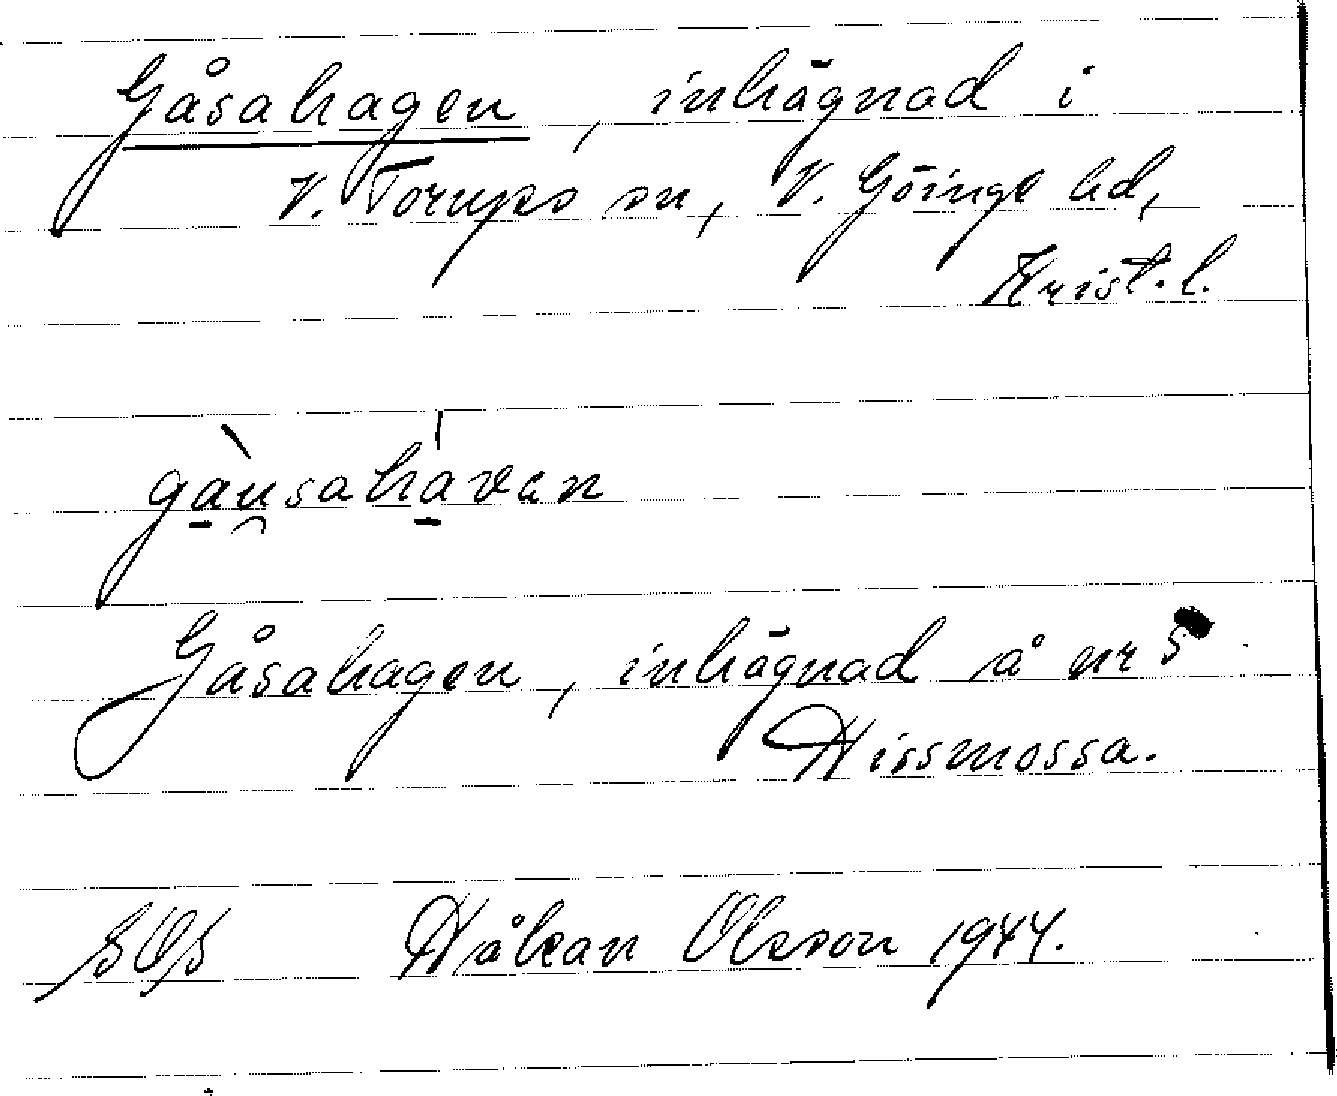 Gåsahagen, inhägnad i
V. Torups sn, V. Göinge hd,
Krist. l.
gàu̯sahávan
Gåsahagen, inhägnad å nr 5
Hissmossa.
SOS Håkan Olsson 1944.